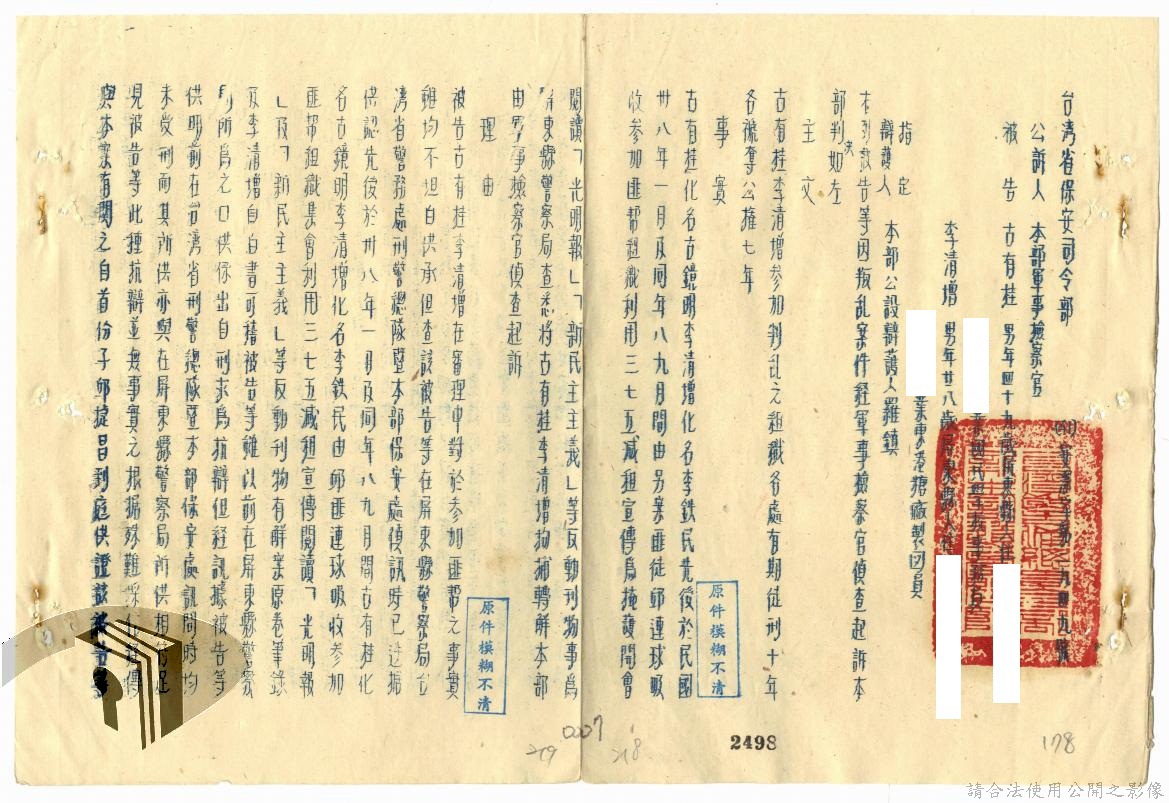 台湾省保安司令部
公訴人 本部軍事檢察官
被告 古有桂 男年四十九歲屏東縣
李清增 男年廿八歲屏東縣人
業東港糖廠製図員
指定
辯護人 本部公設辯護人羅鎮
右列被告等因叛乱案件経軍事檢察官偵查起訴本
部判決如左
主文
古有桂李清增參加判乱之租織各處有期徒刑十年
各褫奪公権七年
事實
古有桂化名古鏡明李清增化名李鉄民先後於民國
卅八年一月及同年八九月間由另案匪徒邱連球吸
收參加匪帮租織利用三七五减租宣傳為掩護開會
閱讀「光明報」「新民主主義」等反動刊物事為
屏東縣警察局查悉將古有桂李清增拘捕轉解本部
由軍事檢察官偵查起訴
理由
被告古有桂李清增在審理中對於參加匪帮之事實
雖均不坦白供承但查該被告等在屏東縣警察局台
湾省警務處刑警總隊暨本部保安處偵訊時已迭據
供認先後於卅八年一月及同年八九月間古有桂化
名古鏡明李清增化名李鉄民由邱匪連球吸收參加
匪帮租織集會利用三七五减租宣傳閱讀「光明報
」及「新民主主義」等反動刊物有解案原卷筆錄
及李清增自白書可稽被告等雖以前在屏東縣警察
局所為之口供係出自刑求為抗辯但経訊據被告等
供明前在台湾省刑警總隊暨本部保安處訊問時均
未受刑而其所供亦與在屏東縣警察局所供相符足
見被告等此種抗辯並無事實之根據殊難採信経傳
與本案有関之自首份子邱捷昌到庭供證該被告等
原件模糊不清
原件模糊不清
0007
2498
178
218
219
請合法使用公開之影像